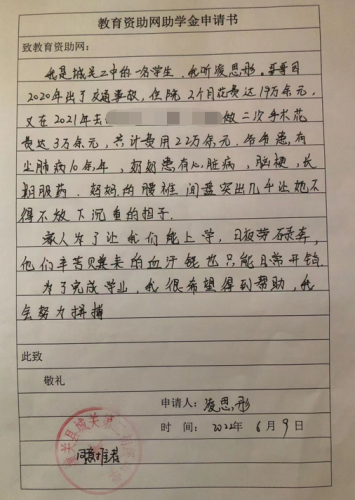 教育资助网助学金申请书
致教育资助网：
我是城关二中的一名学生，我叫凌思彤，哥哥因
2020年出了交通事故，住院2个月花费达19万余元，
又在2021年去 做二次手术花
费达3万余元，共计费用22万余元，爷爷患有
尘肺病10余年，奶奶患有心脏病，脑梗，长
期服药，妈妈的腰椎间盘突出几乎让她不
得不放下沉重的担子.
家人为了让我们能上学，日夜劳碌奔，
他们辛苦赚来的血汗钱也只能日常开销.
为了完成学业，我很希望得到帮助，我
会努力拼搏
此致
敬礼
申请人：凌思彤
时 间：2022年6月9日
同意推荐